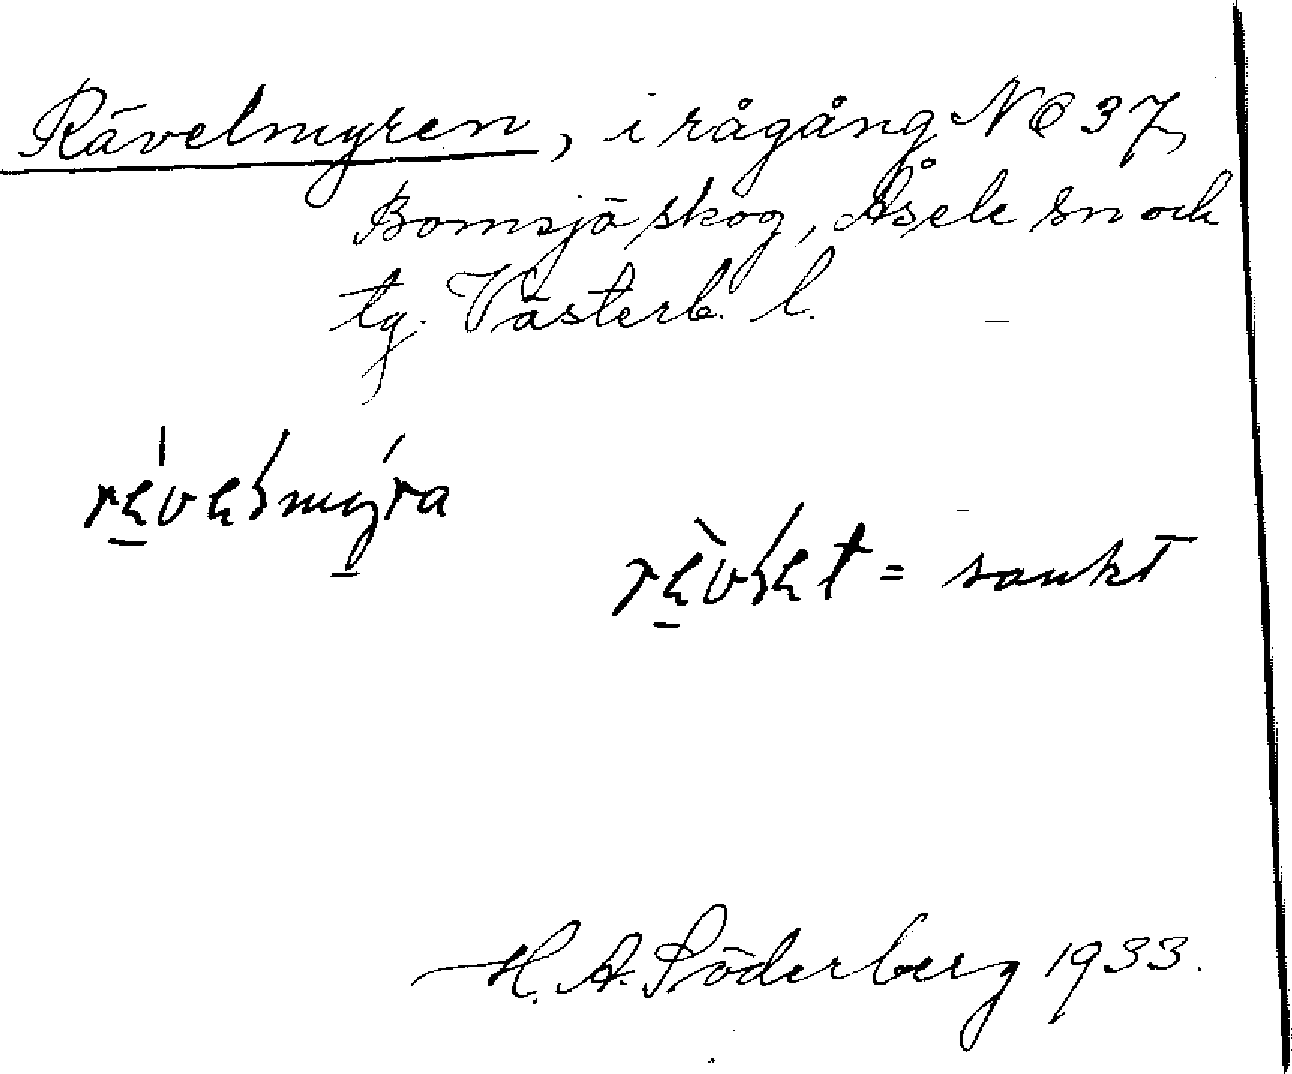 Rävelmyren, i rågång N@ 37,
Bomsjö skog, Åsele sn och
tg. Västerb. l.
= sankt
H. A. Söderberg 1933.